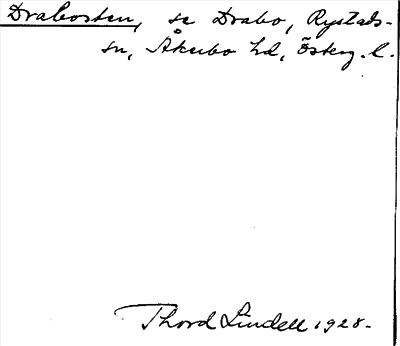 Drabosten, se Drabo, Rystads-
sn, Åkerbo hd, Österg. l.
Thord Lindell 1928.